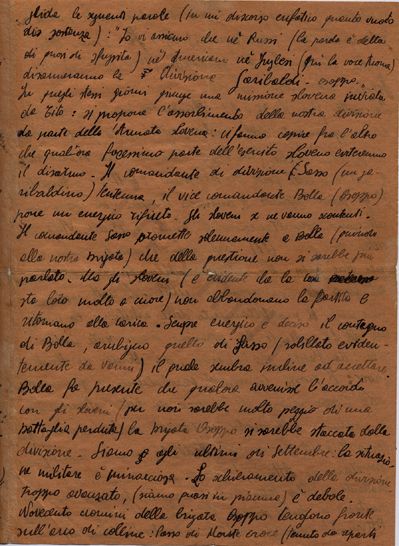 grida le seguenti parole (in un discorso enfatico quanto vuoto
di sostanza): "Io vi assicuro che nè Russi (la parola è detta
di quasi di sfuggita) nè Americani nè Inglesi (qui la voce tuona)
disarmeranno la Divisione Garibaldi - Osoppo.
In quegli stessi giorni giunge una missione slovena inviata
da Tito: si propone l'assorbimento della nostra divisione
da parte della Armata slovena: ci fanno capire fra l'altro
che qualora facessimo parte dell'esercito sloveno eviteremo
il disarmo. Il comandante di divisione (Sasso (un ga
ribaldino) tentenna, il vice comandante Bolla (Osoppo)
pone un energico rifiuto. Gli sloveni se ne vanno scontenti.
Il comandante Sasso promette solennemente a Bolla (
alla nostra brigata) che della questione non si sarebbe più
parlato. Ma gli sloveni (è evidente che la cosa
sta loro molto a cuore) non abbandonano la partita e
ritornano alla carica. Sempre energico e deciso il contegno
di Bolla, ambiguo quello di Sasso (sobillato eviden-
temente da Vanni) il quale sembra incline ad accettare.
Bolla fa presente che qualora avvenisse l'accordo
con gli sloveni (per noi sarebbe molto peggio di una
battaglia perduta) la brigata Osoppo si sarebbe staccata dalla
divisione. Siamo agli ultimi di settembre: la situazio-
ne militare è minacciosa. Lo schieramento della divisione
troppo avanzato, (siamo quasi in pianura) è debole.
Novecento uomini della brigata Osoppo tengono fronte
sull'arco di colline: Passo di Monte Croce (tenuto da reparti